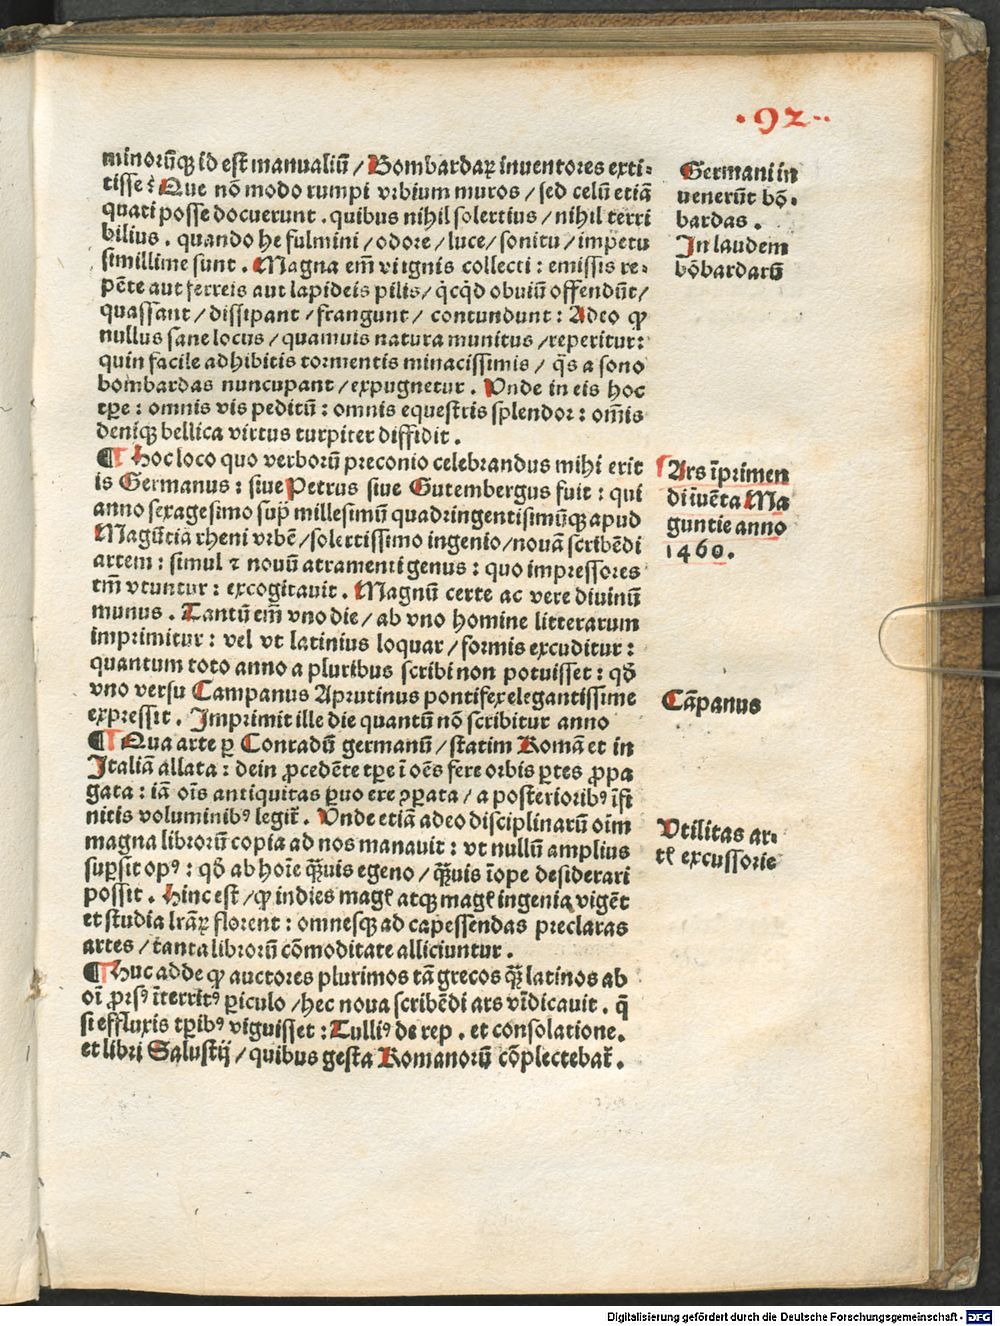 ·92··
minorūqꝫ id est manualiū / Bombardaꝝ inuentores exti-
tisse? Que nō modo rumpi vrbium muros / sed celū etiā
quati posse docuerunt . quibus nihil solertius / nihil terri
bilius . quando he fulmini / odore / luce / sonitu / impetu
simillime sunt . Magna em̄ vi ignis collecti : emissis re-
pēte aut ferreis aut lapideis pilis / q̇cq̇d obuiū offendūt /
quassant / dissipant / frangunt / contundunt : Adeo ꝙ
nullus sane locus / quamuis natura munitus / reperitur :
quin facile adhibitis tormentis minacissimis / q̄s a sono
bombardas nuncupant / expugnetur . Vnde in eis hoc
tꝑe : omnis vis peditū : omnis equestris splendor : om̄is
deniqꝫ bellica virtus turpiter diffidit .
¶ Hoc loco quo verborū preconio celebrandus mihi erit
is Germanus : siue Petrus siue Gutembergus fuit : qui
anno sexagesimo supͥ millesimū quadringentisimūqꝫ apud
Magūtiā rheni vrbē / solertissimo ingenio / nouā scribēdi
artem : simul ⁊ nouū atramenti genus : quo impressores
tm̄ vtuntur : excogitauit . Magnū certe ac vere diuinū
munus . Tantū em̄ vno die / ab vno homine litterarum
imprimitur : vel vt latinius loquar / formis excuditur :
quantum toto anno a pluribus scribi non potuisset : qḋ
vno versu Campanus Aprutinus pontifex elegantissime
expressit . Imprimit ille die quantū nō scribitur anno
¶ Qua arte ꝑ Conradū germanū / statim Romā et in
Italiā allata : dein ꝓcedēte tꝑe ī oēs fere orbis ꝑtes ꝓpa
gata : iā oīs antiquitas ꝑuo ere ꝯꝑata / a posterioribꝰ īfi
nitis voluminibꝰ legit̄ . Vnde etiā adeo disciplinarū oīm
magna librorū copia ad nos manauit : vt nullū amplius
suꝑsit opꝰ : qḋ ab hoīe qͣꝫuis egeno / qͣꝫuis īope desiderari
possit . Hinc est / ꝙ indies magꝭ atqꝫ magꝭ ingenia vigēt
et studia lr̄aꝝ florent : omnesqꝫ ad capessendas preclaras
artes / tanta librorū cōmoditate alliciuntur .
¶ Huc adde ꝙ auctores plurimos tā grecos qͣꝫ latinos ab
oī ꝓrsꝰ īterritꝰ ꝑiculo / hec noua scribēdi ars vīdicauit . q̄
si effluxis tꝑibꝰ viguisset : Tulliꝰ de rep . et consolatione .
et libri Salustij / quibus gesta Romanorū cōplectebat̄ .
Germani in
uenerūt bō-
bardas .
In laudem
bōbardarū
Ars īprimen
di īuēta Ma
guntie anno
1460.
Cāpanus
Vtilitas ar-
tꝭ excussorie
Digitalisierung gefördert durch die Deutsche Forschungsgemeinschaft - DFG